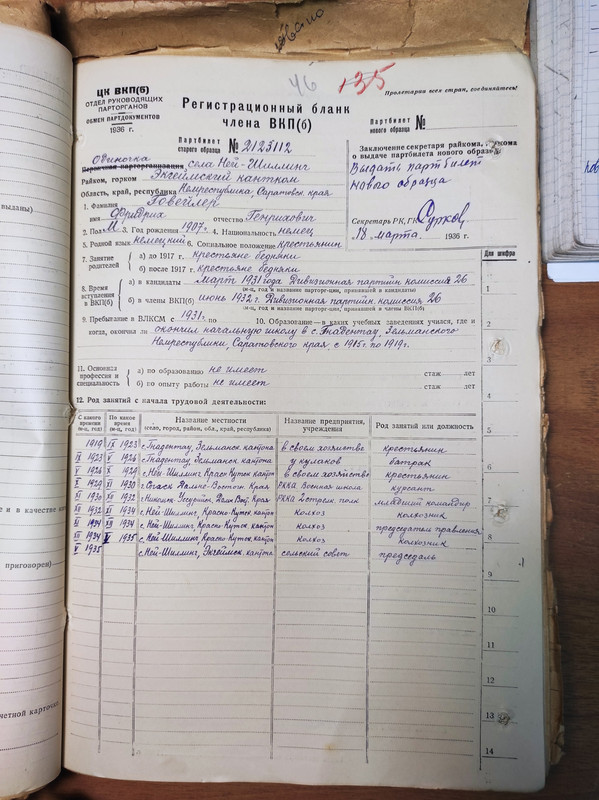 46 135
ЦК ВКП(б)
ОТДЕЛ РУКОВОДЯЩИХ
ПАРТОРГАНОВ
ОБМЕН ПАРТДОКУМЕНТОВ
1936 г.
Пролетарии всех стран, соединяйтесь!
Регистрационный бланк
члена ВКП(б)
Партбилет
старого образца № 2123112
Партбилет
нового образца №
одиночка
Первичная парторганизация села Ней-Шиллинг
Райком, горком Экгеймский кантком
Область, край, республика Немреспублика, Саратовск. края
1. Фамилия Говейлер
имя Фридрих отчество Генрихович
2. Пол М 3. Год рождения 1907 г. 4. Национальность немец
5. Родной язык немецкий 6. Социальное положение крестьянин
Заключение секретаря райкома, горкома
о выдаче партбилета нового образца
Выдать партбилет
нового образца
Секретарь РК, ГК Сурков
"18" марта 1936 г.
Для шифра
7. Занятие родителей
а) до 1917 г. крестьяне бедняки
б) после 1917 г. крестьяне бедняки
8. Время вступления в ВКП(б)
а) в кандидаты март 1931 года Дивизионная партийн комиссия 26
(м-ц, год и название парторг-ции, принявшей в кандидаты)
б) в члены ВКП(б) июнь 1932 г. Дивизионная партийн. комиссия 26
(м-ц, год и название парторг-ции, принявшей в члены)
9. Пребывание в ВЛКСМ с 1931. по 10. Образование—в каких учебных заведениях учился, где и
когда, окончил ли окончил начальную школу в с. Гнадентау, Зельманского
Немреспублики, Саратовского края, с 1915 г. по 1919 г.
11. Основная профессия и специальность
а) по образованию не имеет стаж лет
б) по опыту работы не имеет стаж лет
12. Род занятий с начала трудовой деятельности:
С какого времени (м-ц, год) По какое время (м-ц, год) Название местности (село, город, район, обл., край, республика) Название предприятия, учреждения Род занятий или должность
1919 IX 1923 с. Гнадентау, Зельманск. кантона в своем хозяйстве крестьянин
IX 1923 V 1926 с. Гнадентау Зельманск. кантона у кулаков батрак
V 1926 X 1929 с. Ней-Шиллинг Красно-Кутск. кантон в своем хозяйстве крестьянин
X 1929 IX 1930 г. Спасск Дальне-Восточн. края РККА Военная школа курсант
IX 1930 IX 1932 г. Никольск Уссурийск, Дальн Вост. края РККА стрелк. полк младший командир
IX 1932 IV 1934 с. Ней-Шиллинг, Красно-Кутск. кантон колхоз колхозник
IV 1934 XII 1934 с. Ней-Шиллинг, Красно-Кутск. кантон колхоз председатель правления
XII 1934 V 1935 с. Ней-Шиллинг, Красно-Кутск. кантон колхоз колхозник
V 1935 с. Ней-Шиллинг, Экгеймск. кантон сельский совет председатель
1
2
3
4
5
6
7
8
9
10
11
12
13
14
выданы)
и в качестве
приговорен)
четной карточки